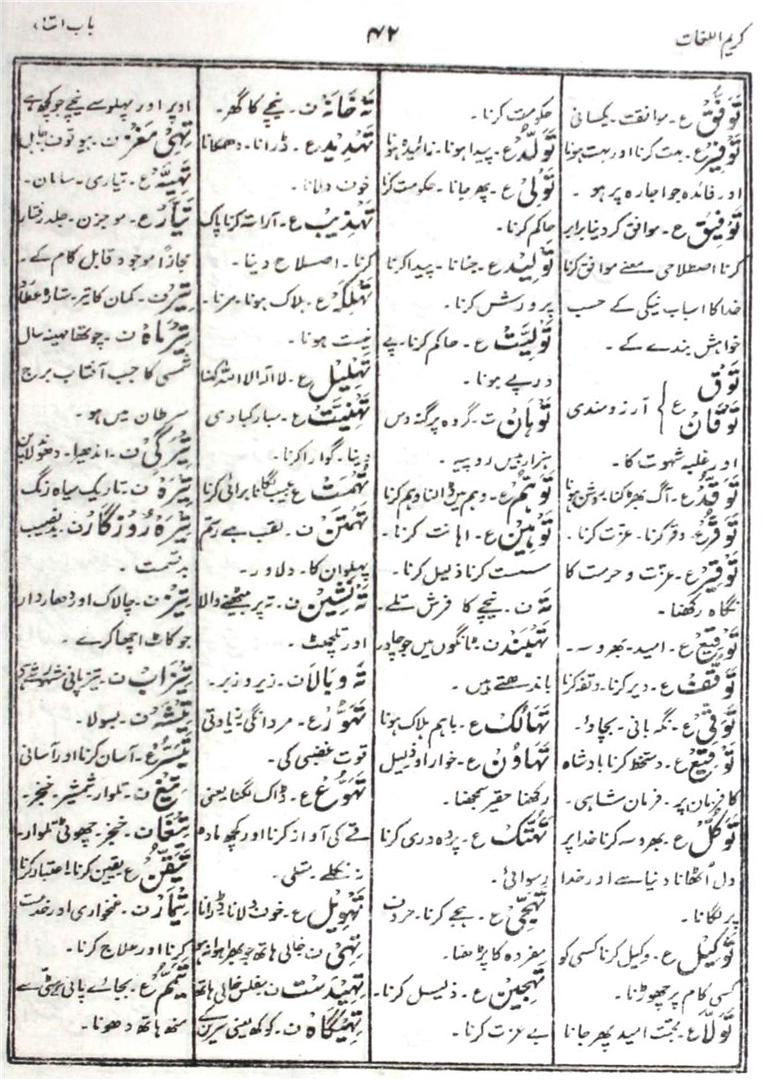 کریم اللغات
۴۲
باب التاء
تَوَفُّق ع۔ موافقت۔ یکسانی
تَوفِیر ع۔ بہت کرنا اور بہت ہونا
اور فائدہ جو اجارہ پر ہو۔
تَوفِیق ع۔ موافق کر دینا برابر
کرنا اصطلاحی معنے موافق کرنا
خدا کا اسباب نیکی کے حسب
خواہش بندے کے۔
تَوق
تَوَقَان } ع آرزومندی
اور غلبہ شہوت کا۔
تَوَقُّد ع۔ آگ بھڑکنا۔ روشن ہونا
تَوَقُّر ع۔ وقر کرنا۔ عزت کرنا۔
تَوقِیر ع۔ عزت و حرمت کا
نگاہ رکھنا۔
تَوَقُّع ع۔ امید۔ بھروسہ۔
تَوَقُّف ع۔ دیر کرنا۔ وقفہ کرنا
تَوَقِّی ع۔ نگہبانی۔ بچاؤ۔
تَوقِیع ع۔ دستخط کرنا بادشاہ
کا فرمان پر۔ فرمان شاہی۔
تَوَکُّل ع۔ بھروسہ کرنا خدا پر
دل اُٹھانا دنیا سے اور خدا
پر لگانا۔
تَوکِیل ع۔ وکیل کرنا کسی کو
کسی کام پر چھوڑنا۔
تَولّا ع۔ محبت امید پھر جانا
حکومت کرنا۔
تَوَلُّد ع۔ پیدا ہونا۔ زائیدہ ہونا
تَوَلِّی ع۔ پھر جانا۔ حکومت کرنا
حاکم کرنا۔
تَولِید ع۔ جنانا۔ پیدا کرنا
پرورش کرنا۔
تَولِیَت ع۔ حاکم کرنا۔ پے
در پے ہونا۔
تُوہان ت۔ گروہ پرگنہ دس
ہزار بیس روپیہ۔
تَوَہُّم ع۔ وہم میں ڈالنا وہم کرنا
تَوہِین ع۔ اہانت کرنا۔
سست کرنا ذلیل کرنا۔
تَہ ف۔ نیچے کا فرش تلے۔
تَہبَند ف۔ ٹانگوں میں جو چادر
باندھتے ہیں۔
تَہَالُک ع۔ باہم ہلاک ہونا
تَہَاوُن ع۔ خوار اور ذلیل
رکھنا حقیر سمجھنا۔
تَہَتُّک ع۔ پردہ دری کرنا
رسوائی۔
تَہَجِّی ع۔ ہجے کرنا۔ حروف
مفردہ کا پڑھنا۔
تَہجِین ع۔ ذلیل کرنا۔
بے عزت کرنا۔
تَہ خَانَہ ف۔ نیچے کا گھر۔
تَہدِید ع۔ ڈرانا۔ دھمکانا
خوف دلانا۔
تَہذِیب ع۔ آراستہ کرنا پاک
کرنا۔ اصلاح دینا۔
تَہلُکَہ ع۔ ہلاک ہونا۔ مرنا۔
نیست ہونا۔
تَہلِیل ع۔ لا الہ الا اللہ کہنا
تَہنِیَت ع۔ مبارکبادی
دینا۔ گوارا کرنا۔
تُہمَت ع۔ عیب لگانا برائی کرنا
تَہمَتَن ف۔ لقب ہے رستم
پہلوان کا۔ دلاور۔
تَہ نَشِین ف۔ تہ پر بیٹھنے والا
اور تلچھٹ۔
تَہ وبالا ف۔ زیر و زبر۔
تَہَوُّر ع۔ مردانگی زیادتی
قوت غضبی کی۔
تَہَوُّع ع۔ ڈاک لگنا یعنی
قے کی آواز کرنا اور کچھ مادہ
نہ نکلے۔ متلی۔
تَہوِیل ع۔ خوف دلانا ڈرانا
تَہِی ف۔ خالی ہاتھ جو بھرا ہوا نہ ہو
تَہِیدَست ف۔ مفلس خالی ہاتھ
تَہِیگَاہ ف۔ کوکھ یعنی سرین کے
اوپر اور پہلو سے نیچے جو کچھ ہے
تَہِی مَغز ف۔ بیوقوف جاہل
تَہِیَّہ ع۔ تیاری۔ سامان۔
تَیَّار ع۔ موجزن۔ جلد رفتار
مجازاً موجود قابل کام کے۔
تِیر ف۔ کمان کا تیر۔ ستارہ عطارد
تِیرمَاہ ف۔ چوتھا مہینہ سال
شمسی کا جب آفتاب برج
سرطان میں ہو۔
تِیرگِی ف۔ اندھیرا۔
تِیرَہ ف۔ تاریک سیاہ رنگ
تِیرَہ رُوزگَار ف۔ بدنصیب
بدقسمت۔
تیز ف۔ چالاک اور دھاردار
جو کاٹ اچھا کرے۔
تیزاب ف۔ تیز پانی
تیشَہ ف۔ بسولا۔
تَیَسُّر ع۔ آسان کرنا اور آسانی
تِیغ ف۔ تلوار شمشیر۔ خنجر۔
تیغا ف۔ خنجر۔ چھوٹی تلوار۔
تَیَقُّن ع۔ یقین کرنا۔ اعتبار کرنا
تِیمار ف۔ غمخواری اور خدمت
کرنا اور علاج کرنا۔
تَیَمُّم ع۔ بجائے پانی مٹی سے
منھ ہاتھ دھونا۔